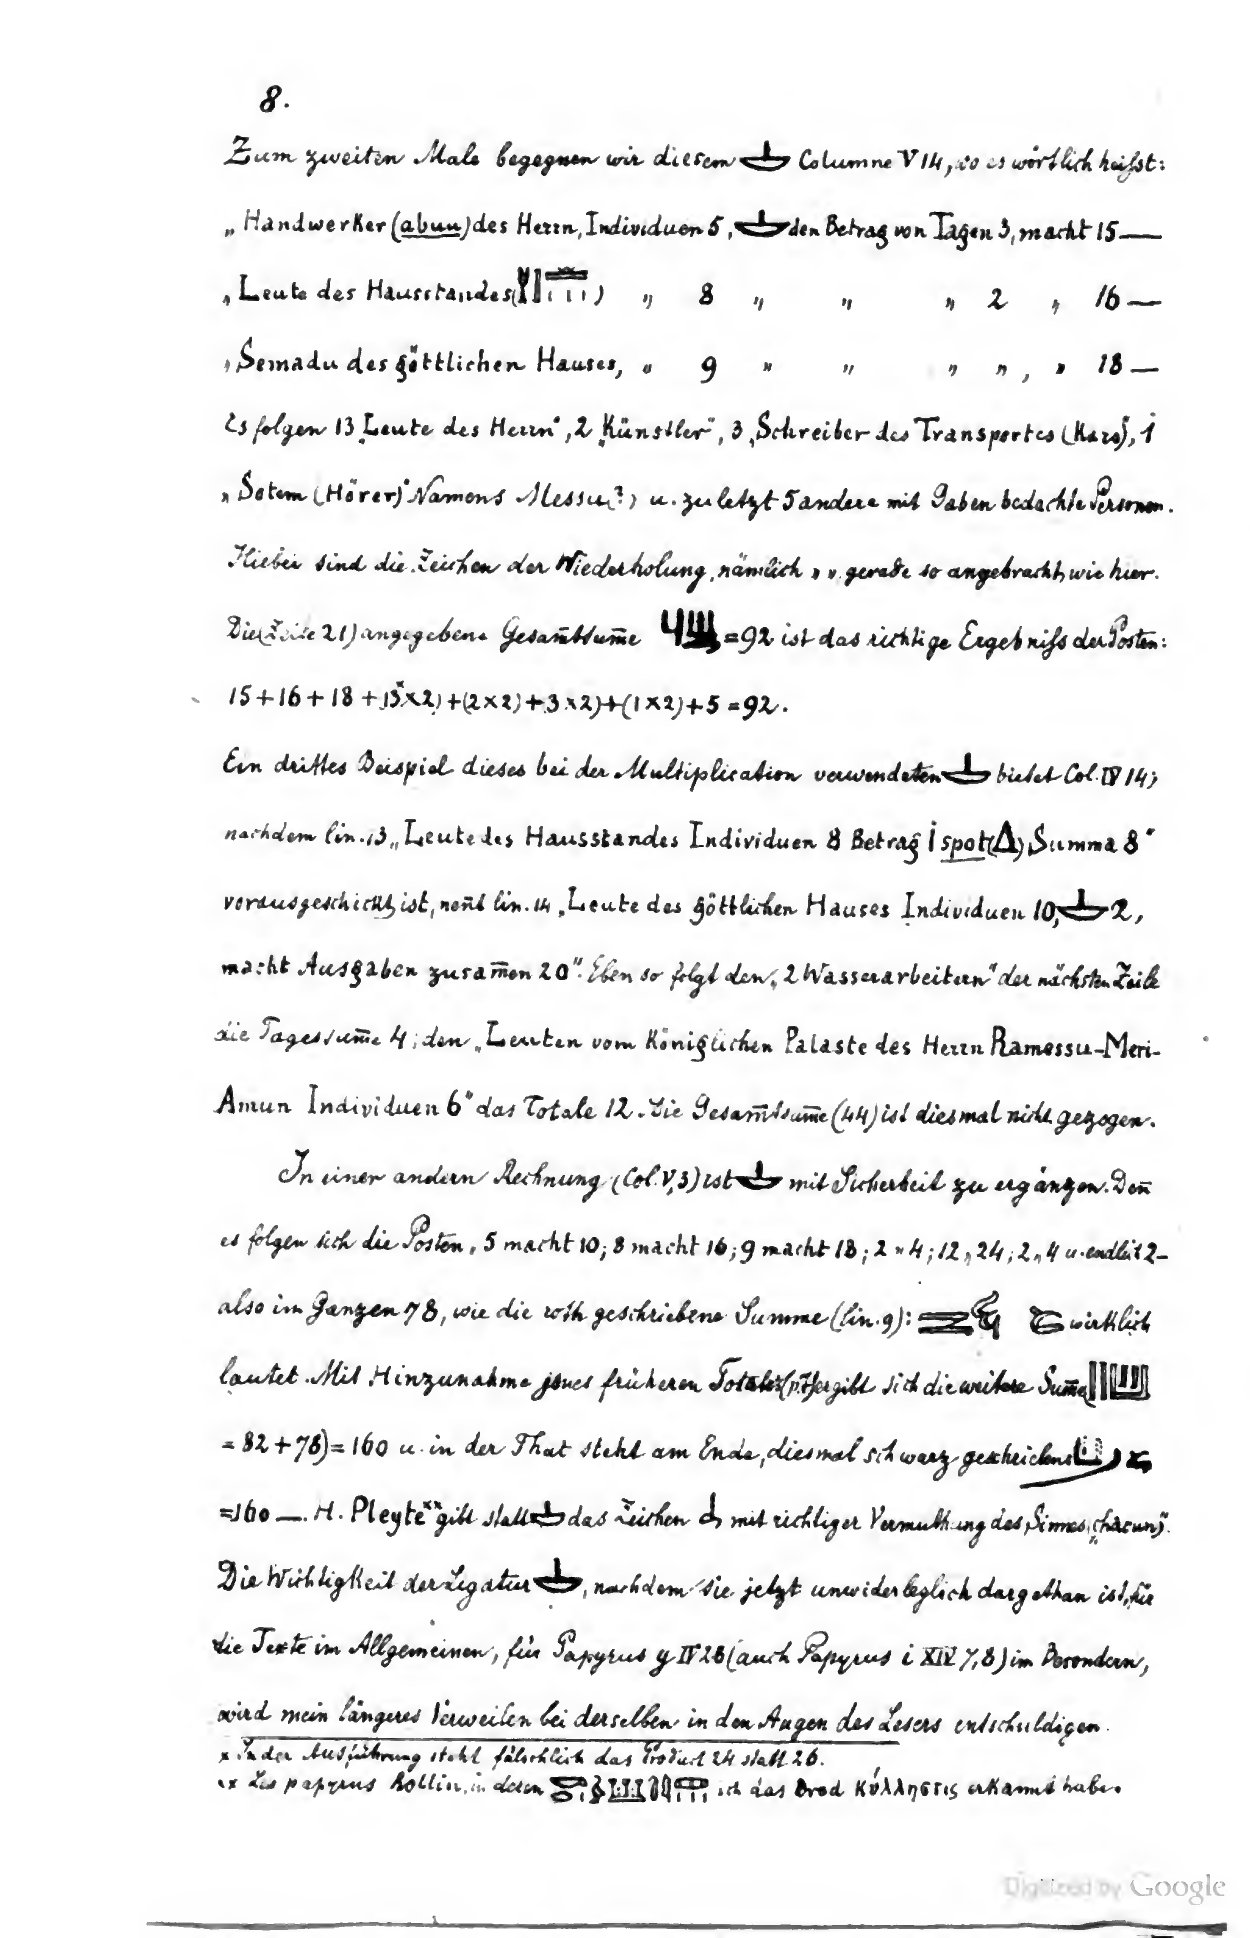 8.
Zum zweiten Male begegnen wir diesem Columne V 14, wo es wörtlich heißt:
„Handwerker (abuu) des Herrn, Individuen 5, den Betrag von Tagen 3, macht 15 —
„Leute des Hausstandes ( ) „ 8 „ „ „ 2 „ 16 —
„Semadu des göttlichen Hauses, „ 9 „ „ „ „ , „ 18 —
Es folgen 13 „Leute des Herrn“, 2 „Künstler“, 3 „Schreiber des Transportes (Kars)“, 1
„Sotem (Hörer)“ Namens Messu(?) u. zuletzt 5 andere mit Gaben bedachte Personen.
Hiebei sind die Zeichen der Wiederholung, nämlich „ „ gerade so angebracht, wie hier.
Die (Zeile 21) angegebene Gesam̅tsum̅e =92 ist das richtige Ergebniß der Posten:
15+16+18+(13ˣ×2)+(2×2)+(3×2)+(1×2)+5=92.
Ein drittes Beispiel dieses bei der Multiplication verwendeten bietet Col. IV 14;
nachdem lin. 13 „Leute des Hausstandes Individuen 8 Betrag 1 spot(Δ), Summa 8“
vorausgeschickt ist, nen̅t lin. 14 „Leute des göttlichen Hauses Individuen 10, 2,
macht Ausgaben zusam̅en 20“. Eben so folgt den „2 Wasserarbeitern“ der nächsten Zeile
die Tagessum̅e 4; den „Leuten vom Königlichen Palaste des Herrn Ramessu-Meri-
Amun Individuen 6“ das Totale 12. Die Gesam̅tsum̅e (44) ist diesmal nicht gezogen.
In einer andern Rechnung (Col. V, 3) ist mit Sicherheit zu ergänzen. Den̅
es folgen sich die Posten „5 macht 10; 8 macht 16; 9 macht 18; 2 „ 4; 12 „ 24; 2 „ 4 u. endlich 2 —
also im Ganzen 78, wie die roth geschriebene Summe (lin. 9): wirklich
lautet. Mit Hinzunahme jenes früheren Totales (p. 7) ergibt sich die weitere Sum̅e
=82+78)=160 u. in der That steht am Ende, diesmal schwarz geschrieben
=160 —. H. Pleyteˣˣ gibt statt das Zeichen mit richtiger Vermuthung des Sinnes „chacun“.
Die Wichtigkeit der Ligatur , nachdem sie jetzt unwiderleglich dargethan ist, für
die Texte im Allgemeinen, für Papyrus y IV 28 (auch Papyrus i XIV 7,8) im Besondern,
wird mein längeres Verweilen bei derselben in den Augen des Lesers entschuldigen.
x In der Ausführung steht fälschlich das Product 24 statt 26.
xx Les papyrus Rollin, in denen ich das Brod κύλληστις erkannt habe.
Digitized by Google